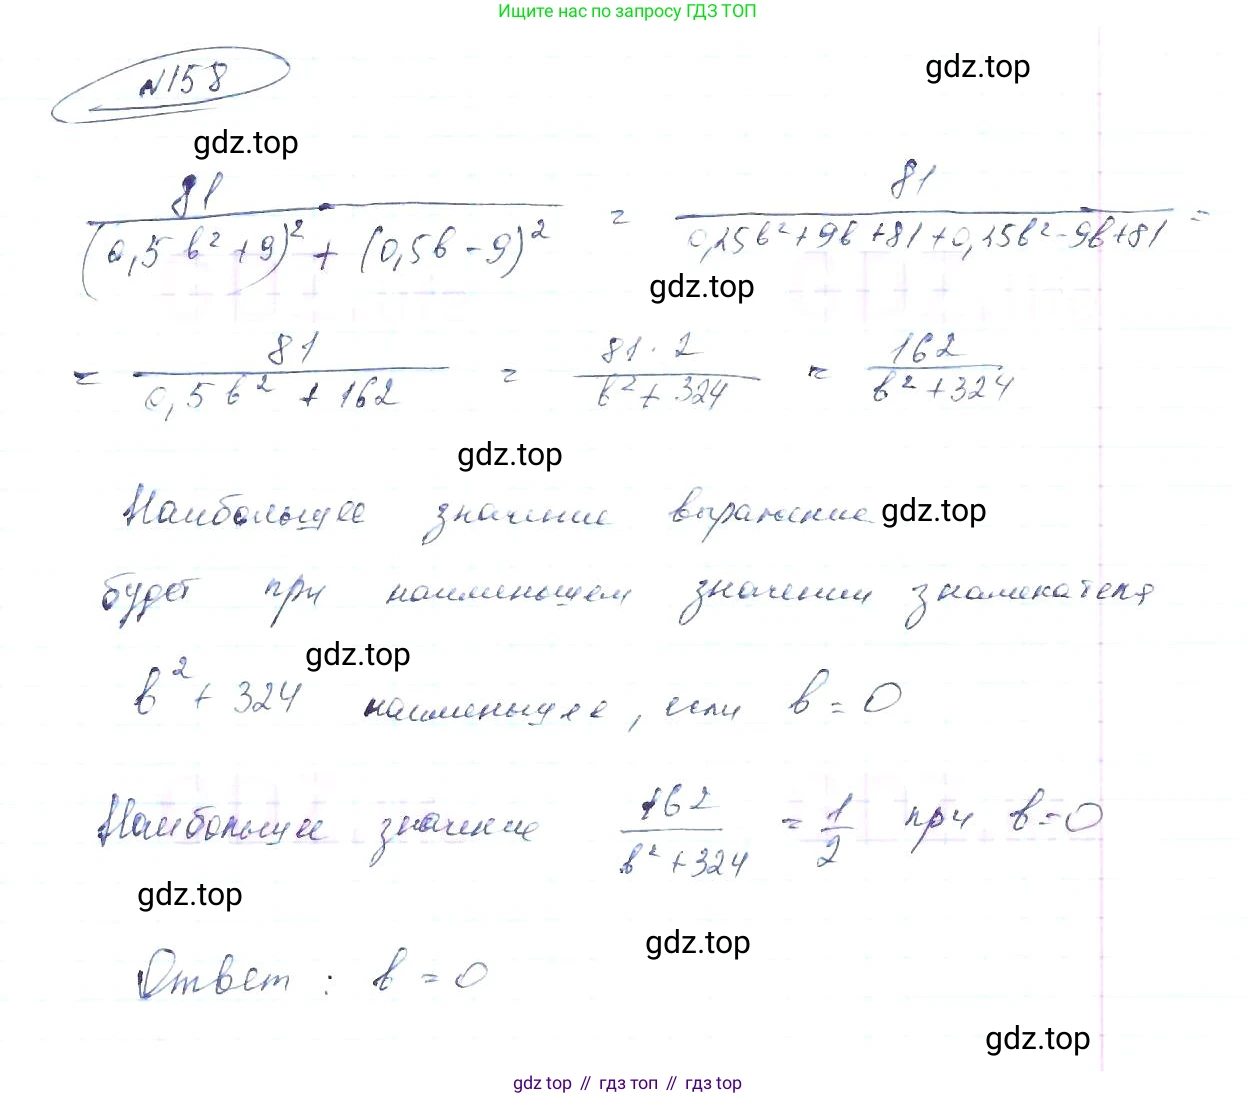 Ищите нас по запросу ГДЗ ТОП
gdz.top
№158
gdz.top
81 / ((0,5b²+9)² + (0,5b-9)²) = 81 / (0,25b²+9b+81+0,25b²-9b+81) =
gdz.top
= 81 / (0,5b²+162) = 81·2 / (b²+324) = 162 / (b²+324)
gdz.top
Наибольшее значение выражение gdz.top
будет при наименьшем значении знаменателя
gdz.top
b²+324 наименьшее, если b=0
Наибольшее значение 162 / (b²+324) = 1/2 при b=0
gdz.top
gdz.top
Ответ: b=0
gdz.top
gdz top // гдз топ // gdz top